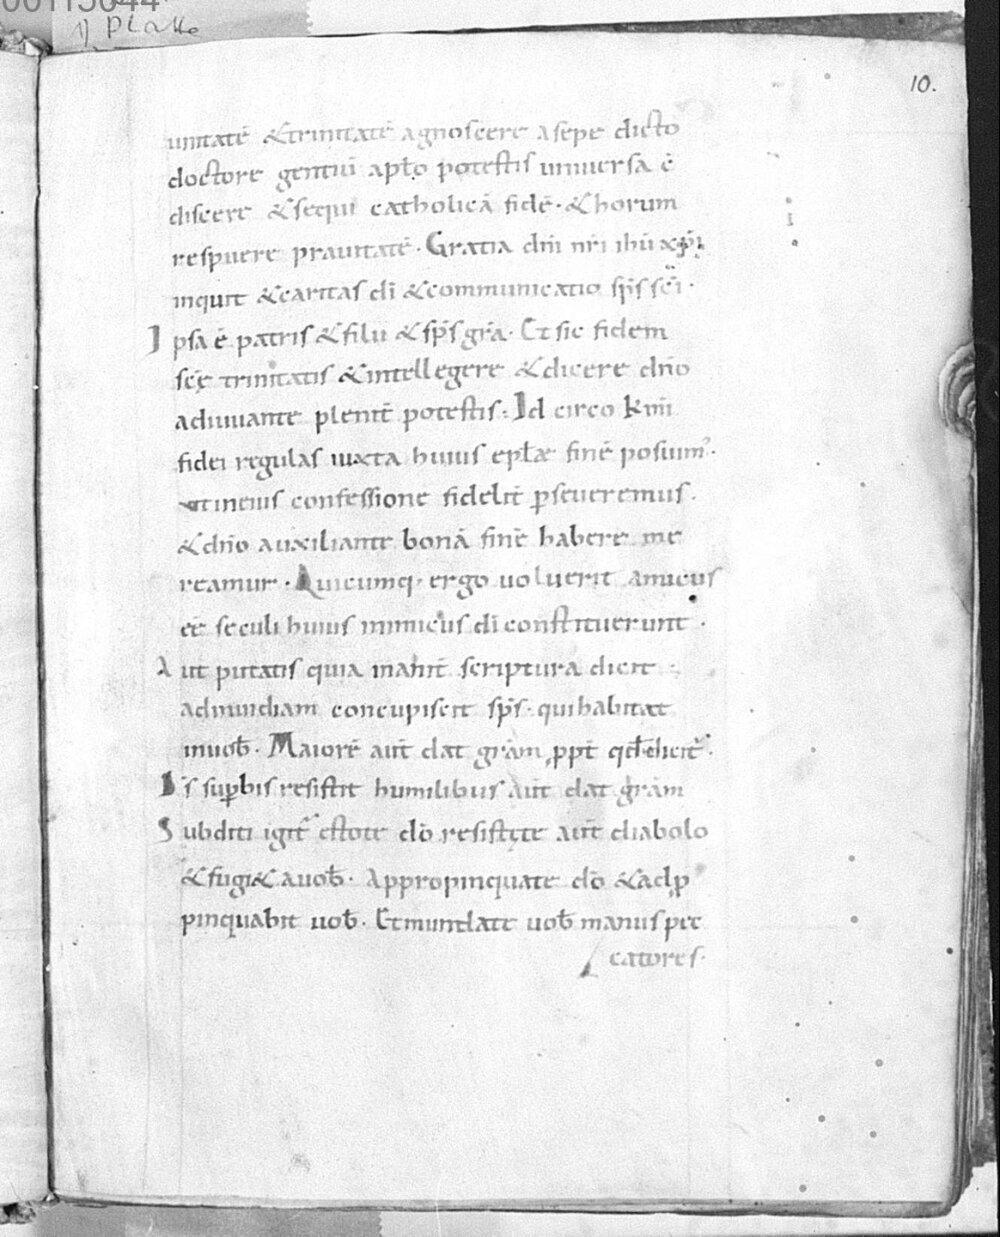 00115044
platte
10.
unitatē &trinitatē agnoscere asepe dicto
doctore gentiū apl̄o potestis uniuersa ē
discere &sequi catholicā fidē· &horum
respuere prauitatē· Gratia dn̄i nr̄i ihū xp̄i
inquit &caritas dī &communicatio sp̄s sc̄i·
Ipsa ē patris &filii &sp̄s gr̄a· Et sic fidem
sc̄ę trinitatis &intellegere &dicere dn̄o
adiuuante plenit̄ potestis· Id circo km̄i
fidei regulas iuxta huius epl̄ae finē posuim᾽·
ut ineius confessione fidelit̄ ꝑseueremus·
&dn̄o auxiliante bonā finē habere me
reamur· Quicumq· ergo uoluerit amicus
ee seculi huius inimicus dī constituerunt·
Aut putatis quia inanit̄ scriptura dicit
adinuidiam concupiscit sp̄s· quihabitat
inuob̄· Maiorē aut̄ dat gr̄am, ꝓpt̄ qd̄ dicit·
Ds suꝑbis resistit humilibus aut̄ dat gr̄am
Subditi igit̄ estote dō resistite aut̄ diabolo
&fugi& auob̄· Appropinquate dō &adꝓ
pinquabit uob̄· Etmundate uob̄ manus pec
catores·